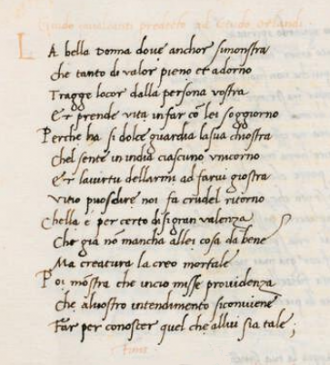 Guido Cavalcanti predetto ad Guido Orlandi.
LA bella Donna dove anchor simonstra
che tanto di valor pieno et adorno
Tragge locor dalla persona vostra
Et prende vita in far cō lei soggiorno
Perche ha si dolce guardia la sua chiostra
Chel sente in india ciascuno unicorno
Et lavirtu dellarmi ad farvi giostra
Vitio puosdire noi fa crudel ritorno
Chella è per certo di sigran valenza
Che gia nō mancha allei cosa da bene
Ma creatura la creo mortale
Poi mōstra che in cio misse providenza
Che alvostro intendimento siconviene
Far per conoscer quel che allui sia tale;